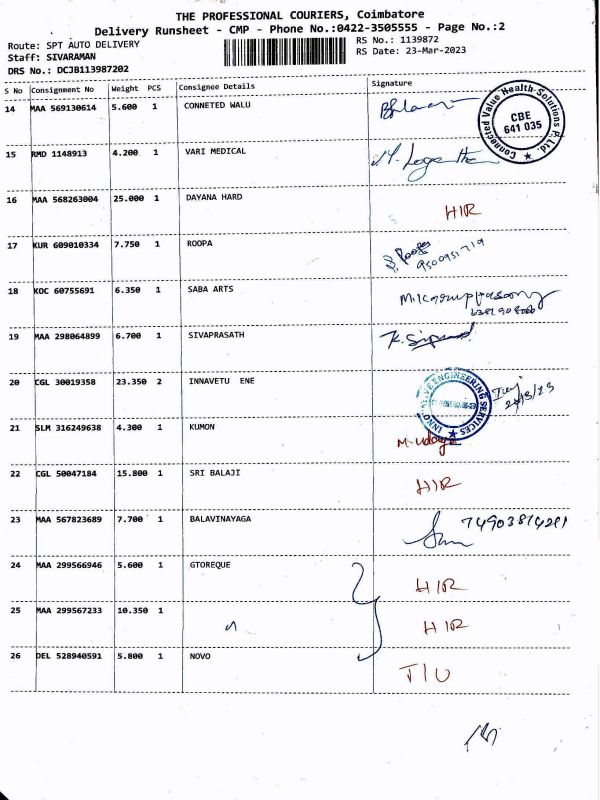 THE PROFESSIONAL COURIERS, Coimbatore
Delivery Runsheet - CMP - Phone No.:0422-3505555 - Page No.:2
Route: SPT AUTO DELIVERY
RS No.: 1139872
Staff: SIVARAMAN
RS Date: 23-Mar-2023
DRS No.: DCJB113987202
S No Consignment No Weight PCS Consignee Details Signature
14 MAA 569130614 5.600 1 CONNETED WALU
Connected Value Health-Solutions P. Ltd.
CBE
641 035
15 RMD 1148913 4.200 1 VARI MEDICAL
16 MAA 568263004 25.000 1 DAYANA HARD HIR
17 KUR 609010334 7.750 1 ROOPA Roopa
9500951719
18 KOC 60755691 6.350 1 SABA ARTS
19 MAA 298064899 6.700 1 SIVAPRASATH
20 CGL 30019358 23.350 2 INNAVETU ENE
ENGINEERING SERVICES
21 SLM 316249638 4.300 1 KUMON M. Udaya
22 CGL 50047184 15.800 1 SRI BALAJI HIR
23 MAA 567823689 7.700 1 BALAVINAYAGA
24 MAA 299566946 5.600 1 GTOREQUE HIR
25 MAA 299567233 10.350 1 HIR
26 DEL 528940591 5.800 1 NOVO